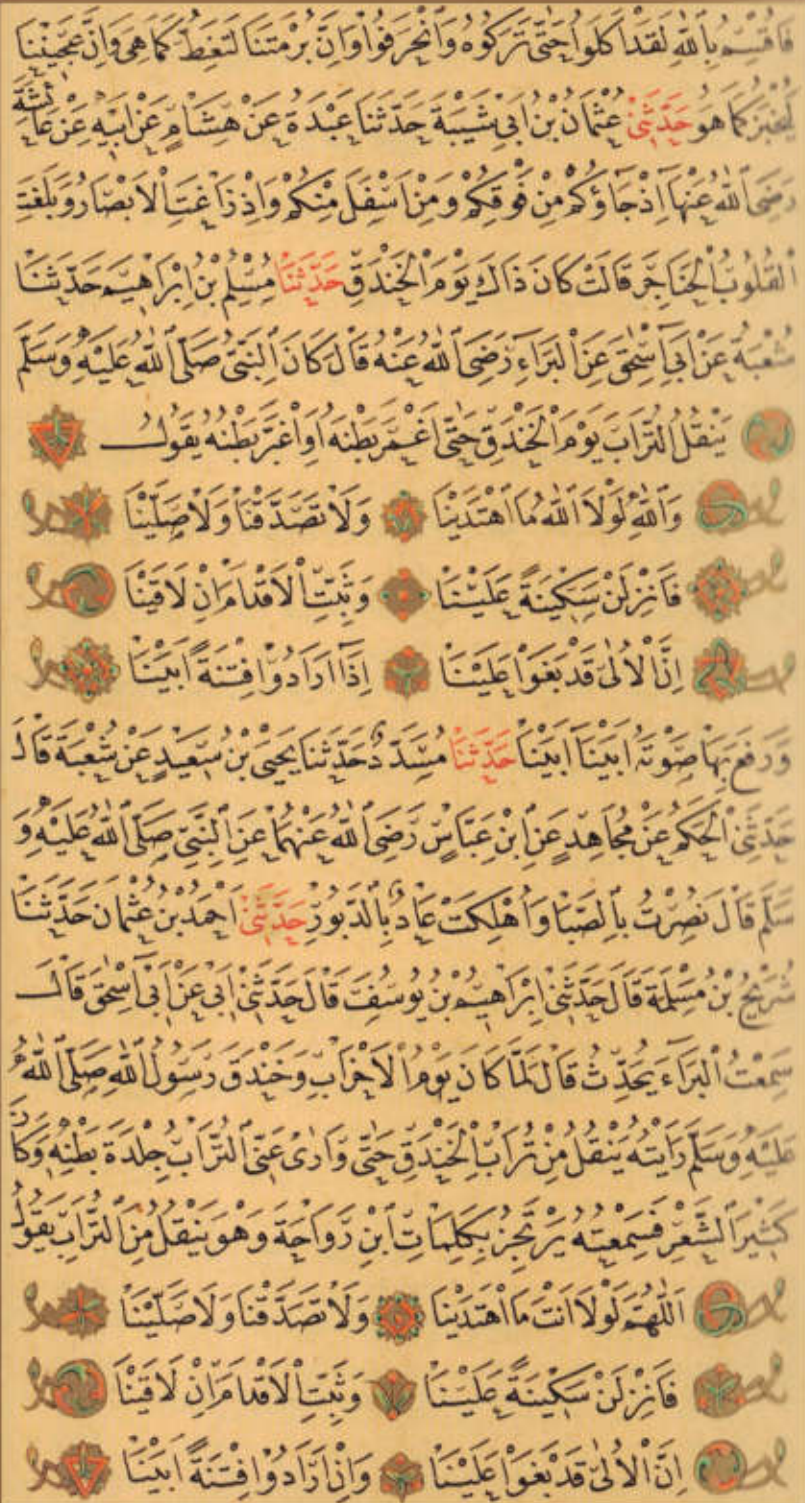 فَاُقْسِمُ بِاللّٰهِ لَقَدْ اَكَلُوا حَتّٰى تَرَكُوهُ وَانْحَرَفُوا وَاِنَّ بُرْمَتَنَا لَتَغِطُّ كَمَا هِىَ وَاِنَّ عَجِينَنَا
لَيُخْبَزُ كَمَا هُوَ حَدَّثَنِى عُثْمَانُ بْنُ اَبِى شَيْبَةَ حَدَّثَنَا عَبْدَةُ عَنْ هِشَامٍ عَنْ اَبِيهِ عَنْ عَائِشَةَ
رَضِىَ اللّٰهُ عَنْهَا اِذْ جَاؤُكُمْ مِنْ فَوْقِكُمْ وَمِنْ اَسْفَلَ مِنْكُمْ وَاِذْ زَاغَتِ الْاَبْصَارُ وَبَلَغَتِ
الْقُلُوبُ الْحَنَاجِرَ قَالَتْ كَانَ ذَاكَ يَوْمَ الْخَنْدَقِ حَدَّثَنَا مُسْلِمُ بْنُ اِبْرَاهِيمَ حَدَّثَنَا
شُعْبَةُ عَنْ اَبِى اِسْحٰقَ عَنِ الْبَرَاءِ رَضِىَ اللّٰهُ عَنْهُ قَالَ كَانَ النَّبِىُّ صَلَّى اللّٰهُ عَلَيْهِ وَسَلَّمَ
يَنْقُلُ التُّرَابَ يَوْمَ الْخَنْدَقِ حَتّٰى اَغْمَرَ بَطْنَهُ اَوِ اغْبَرَّ بَطْنُهُ يَقُولُ
وَاللّٰهِ لَوْلَا اللّٰهُ مَا اهْتَدَيْنَا وَلَا تَصَدَّقْنَا وَلَا صَلَّيْنَا
فَاَنْزِلَنْ سَكِينَةً عَلَيْنَا وَثَبِّتِ الْاَقْدَامَ اِنْ لَاقَيْنَا
اِنَّ الْاُلٰى قَدْ بَغَوْا عَلَيْنَا اِذَا اَرَادُوا فِتْنَةً اَبَيْنَا
وَرَفَعَ بِهَا صَوْتَهُ اَبَيْنَا اَبَيْنَا حَدَّثَنَا مُسَدَّدٌ حَدَّثَنَا يَحْيَى بْنُ سَعِيدٍ عَنْ شُعْبَةَ قَالَ
حَدَّثَنِى الْحَكَمُ عَنْ مُجَاهِدٍ عَنِ ابْنِ عَبَّاسٍ رَضِىَ اللّٰهُ عَنْهُمَا عَنِ النَّبِىِّ صَلَّى اللّٰهُ عَلَيْهِ وَ
سَلَّمَ قَالَ نُصِرْتُ بِالصَّبَا وَاُهْلِكَتْ عَادٌ بِالدَّبُورِ حَدَّثَنِى اَحْمَدُ بْنُ عُثْمَانَ حَدَّثَنَا
شُرَيْحُ بْنُ مَسْلَمَةَ قَالَ حَدَّثَنِى اِبْرَاهِيمُ بْنُ يُوسُفَ قَالَ حَدَّثَنِى اَبِى عَنْ اَبِى اِسْحٰقَ قَالَ
سَمِعْتُ الْبَرَاءَ يُحَدِّثُ قَالَ لَمَّا كَانَ يَوْمُ الْاَحْزَابِ وَخَنْدَقَ رَسُولُ اللّٰهِ صَلَّى اللّٰهُ
عَلَيْهِ وَسَلَّمَ رَاَيْتُهُ يَنْقُلُ مِنْ تُرَابِ الْخَنْدَقِ حَتّٰى وَارٰى عَنِّى التُّرَابُ جِلْدَةَ بَطْنِهِ وَكَانَ
كَثِيرَ الشَّعْرِ فَسَمِعْتُهُ يَرْتَجِزُ بِكَلِمَاتِ ابْنِ رَوَاحَةَ وَهُوَ يَنْقُلُ مِنَ التُّرَابِ يَقُولُ
اَللّٰهُمَّ لَوْلَا اَنْتَ مَا اهْتَدَيْنَا وَلَا تَصَدَّقْنَا وَلَا صَلَّيْنَا
فَاَنْزِلَنْ سَكِينَةً عَلَيْنَا وَثَبِّتِ الْاَقْدَامَ اِنْ لَاقَيْنَا
اِنَّ الْاُلٰى قَدْ بَغَوْا عَلَيْنَا وَاِنْ اَرَادُوا فِتْنَةً اَبَيْنَا